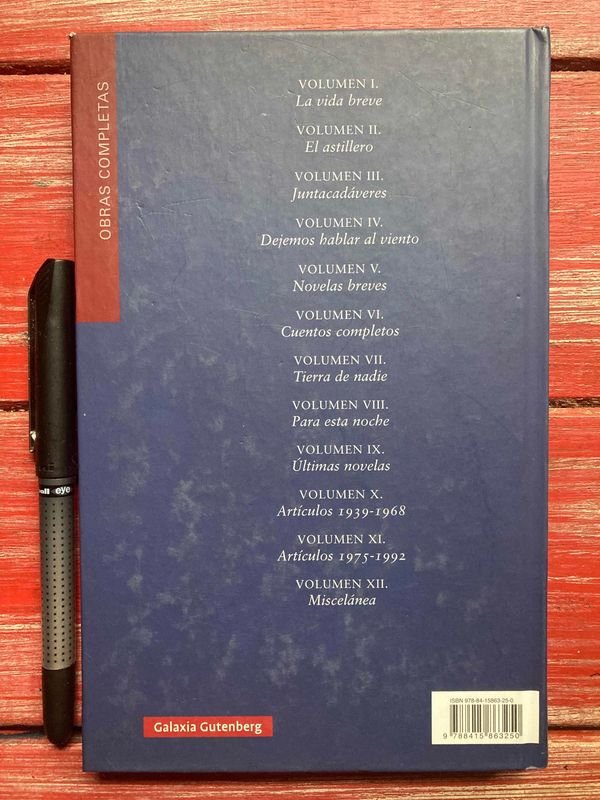 OBRAS COMPLETAS
VOLUMEN I.
La vida breve
VOLUMEN II.
El astillero
VOLUMEN III.
Juntacadáveres
VOLUMEN IV.
Dejemos hablar al viento
VOLUMEN V.
Novelas breves
VOLUMEN VI.
Cuentos completos
VOLUMEN VII.
Tierra de nadie
VOLUMEN VIII.
Para esta noche
VOLUMEN IX.
Últimas novelas
VOLUMEN X.
Artículos 1939-1968
VOLUMEN XI.
Artículos 1975-1992
VOLUMEN XII.
Miscelánea
eye
Galaxia Gutenberg
ISBN 978-84-15863-25-0
9 788415 863250